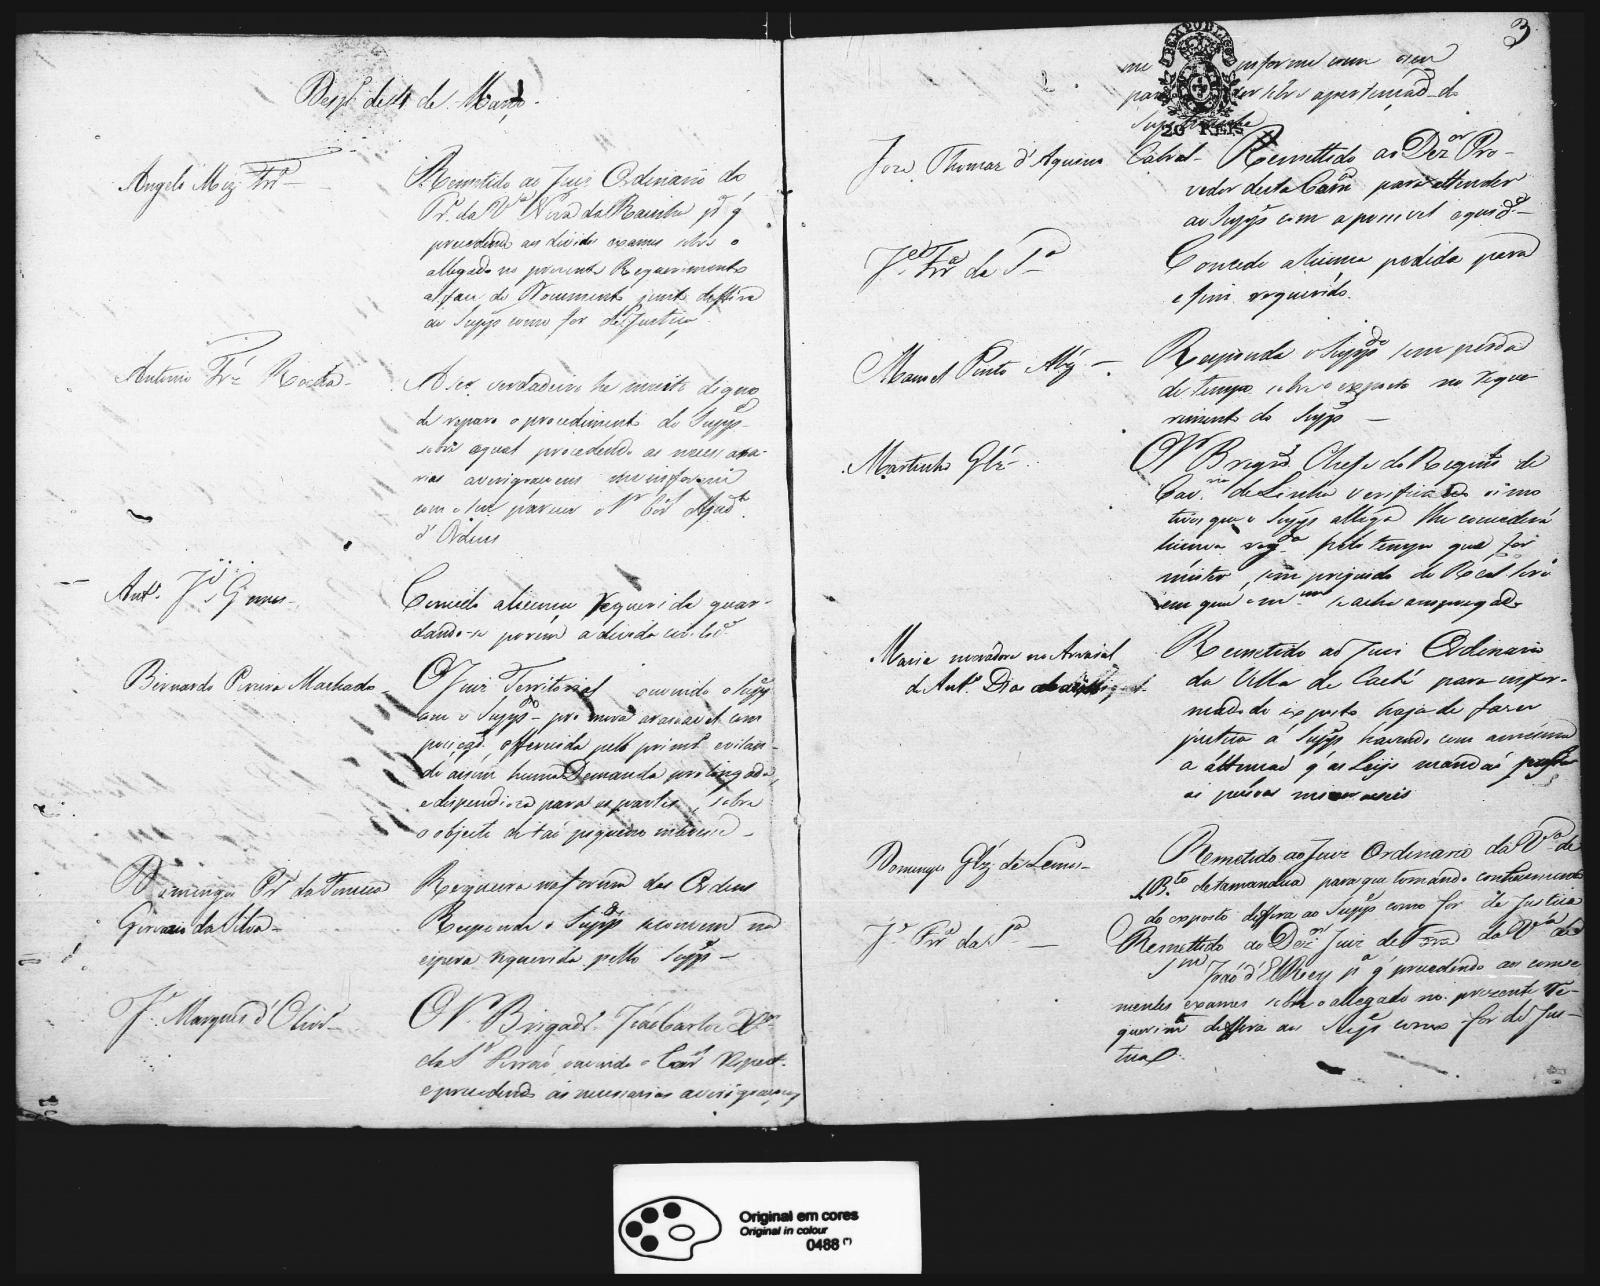 Desp.º de 4 de Março.
Angelo Miz Frr.ª
Remetido ao Juiz Ordinario do
Pr. da V.ª Nova da Rainha p.ª q̃
procedendo aos devidos exames sobre o
allegado no presente Requerimento
a face do Documento junto deffira
ao Supp.e como for de Justiça.
Antonio Frz Rocha
A ser verdadeiro he muito digno
de reparo o procedimento do Supp.do
sobre o qual procedendo as necessa-
rias averiguaçoens me informe
com o seu parecer o Sr. Cor.el Ajud.e
d'Ordens
Ant.º J.e Gomes
Concedo a licença requerida guar-
dando-se porem a devida
Bernardo Pereira Machado
O Juiz Territorial ouvindo o Supp.e
com o Supp.do promova a
offerecida pelo prim.º evitan-
do assim huma Demanda prolongada,
e dispendiosa para as partes, sobre
o objecto de tão pequeno interesse
Domingos Pr.ª da Fonseca
Requeira na forma das Ordens
Gervasio da Silva
Responda o Supp.do
espera requerida pello Supp.e
J.e Marques d'Oliv.ra
O Sr. Brigad.r João Carlos X.er
da S.ª Ferrão, ouvindo o Com.e respect.
e procedendo ás necessarias averiguaçoens
3
me informe com o seu
parecer sobre a pertenção do
Supplicante
20 REIS
Jozé Thomaz d'Aquino Cabral
Remettido ao Dez.or Pro-
vedor desta Com.ca para attender
ao Supp.e com a possivel equid.e
J.e Frr.ª da S.ª
Concedo a licença pedida para
o fim requerido.
Manoel Pinto Alz
Responda o Supp.do sem perda
de tempo sobre o exposto no reque
rimento do Supp.e
Martinho Glz
O Sr. Brigad.r Chefe do Regim.to de
Cav.ria de Linha verificando os mo
tivos que o Supp.e allega lhe concederá
licença reg.da pelo tempo que for
mister, sem prejuizo do Real Serv.
em que o m.mo se acha empregado
Maria moradora no Arraial
de Ant.º Dias
Remetido ao Juiz Ordinario
da Villa de Caeté para infor-
mado do exposto haja de fazer
justiça á Supp.e havendo com a mesma
a attenção q̃ as Leys mandão
as pessoas miseraveis
Domingos Glz de Lemos
Remetido ao Juiz Ordinario da V.ª de
S. B.to de tamandua para que tomando conhecimento
do exposto deffira ao Supp.e como for de Justiça
J.e Frr.ª da S.ª
Remettido ao Dez.or Juiz de Fora da V.ª de
S. João d'ElRey p.ª q̃ procedendo aos conve
nientes exames sobre o allegado no prezente re-
querim.to deffira ao Supp.e como for de Jus-
tiça.
Original em cores
Original in colour
0488 (*)